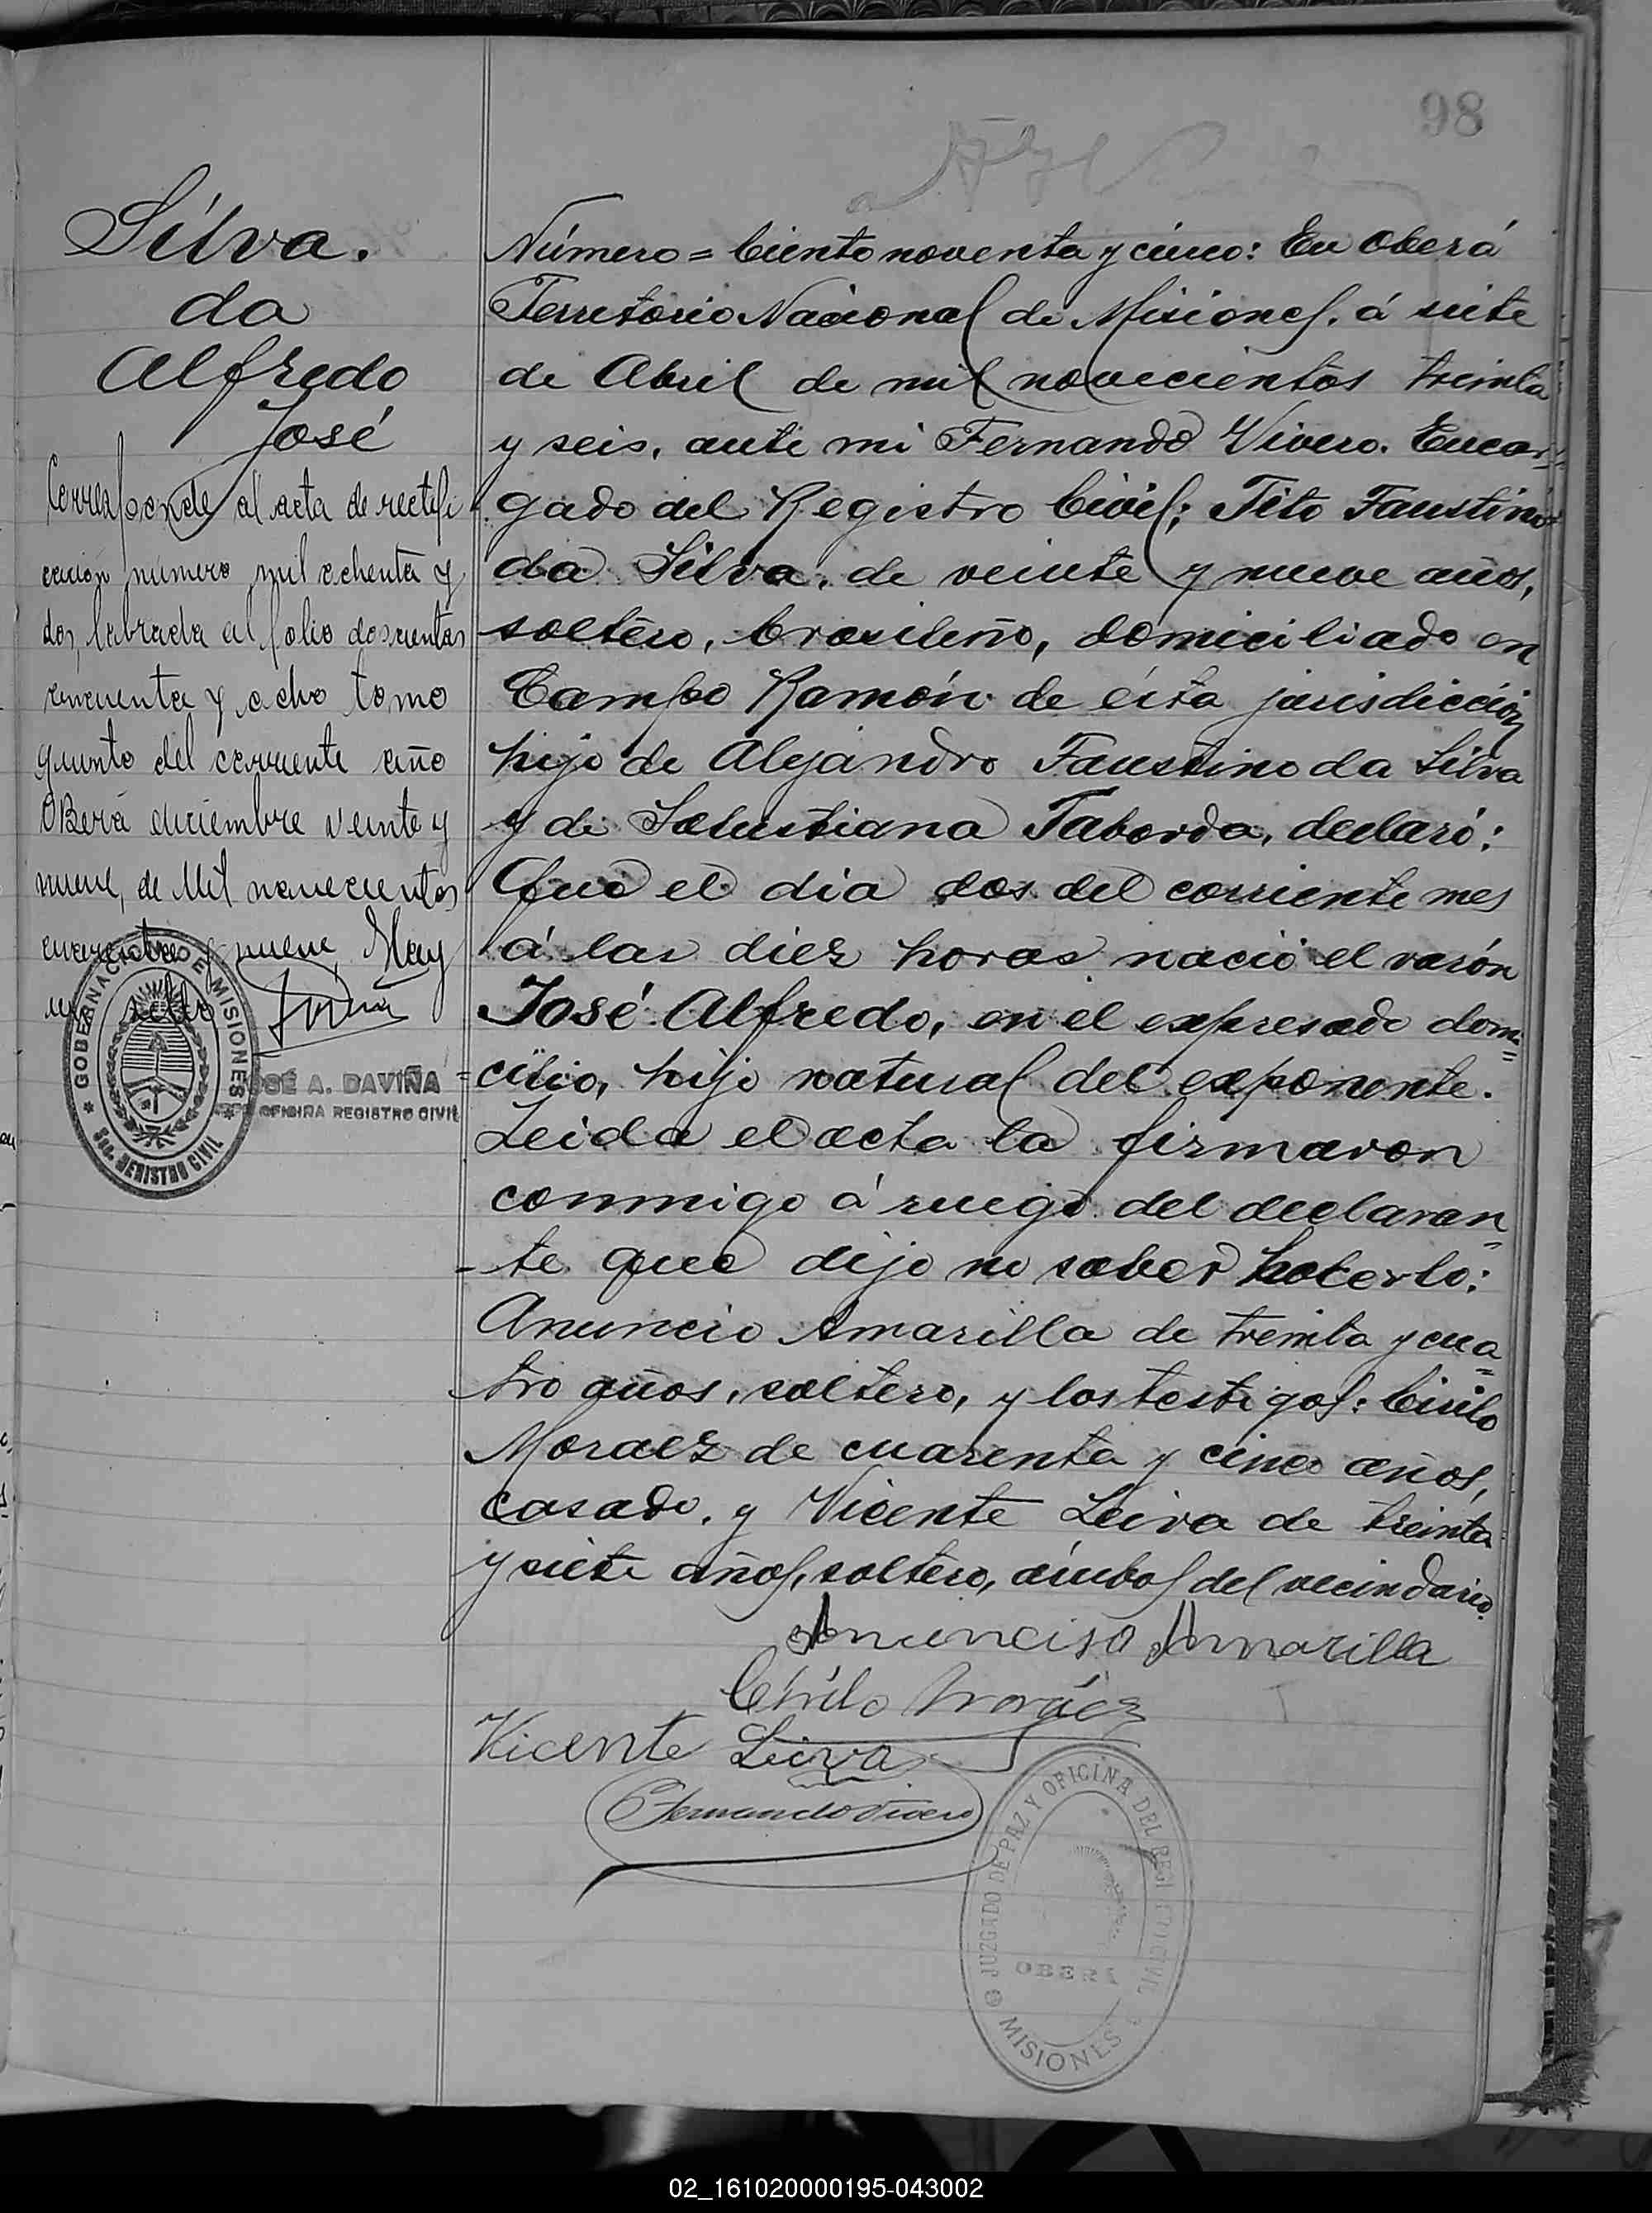 98
Silva.
da
Alfredo
José
Corresponde al acta de rectifi
cación número mil ochenta y
dos, labrada al folio doscientos
cincuenta y ocho tomo
quinto del corriente año
Oberá diciembre veinte y
nueve, de Mil novecientos
cuarenta y nueve, Hay
un sello
GOBERNACION DE MISIONES
Sec. REGISTRO CIVIL
JOSÉ A. DAVIÑA
OFICINA REGISTRO CIVIL
Número = Ciento noventa y cinco: En Oberá
Territorio Nacional de Misiones, á siete
de Abril de mil novecientos treinta
y seis, ante mi Fernando Vivero. Encar-
gado del Registro Civil; Tito Faustino
da Silva, de veinte y nueve años,
soltero, brasileño, domiciliado en
Campo Ramón de ésta jurisdicción
hijo de Alejandro Faustino da Silva
y de Salustiana Taborda, declaró:
Que el dia dos del corriente mes
á las diez horas nació el varón
José Alfredo, en el expresado domi=
=cilio, hijo natural del exponente.
Leida el acta la firmaron
conmigo á ruego del declaran=
-te que dijo no saber hacerlo:
Anuncio Amarilla de treinta y cua=
tro años, soltero, y los testigos: Cirilo
Moraez de cuarenta y cinco años,
casado, y Vicente Leiva de treinta
y siete años, soltero, ámbos del vecindario.
Anunciso Amarilla
Cirilo Moráez
Vicente Leiva
Fernando Vivero
JUZGADO DE PAZ Y OFICINA DEL REGISTRO CIVIL
OBERÁ
MISIONES
02_161020000195-043002